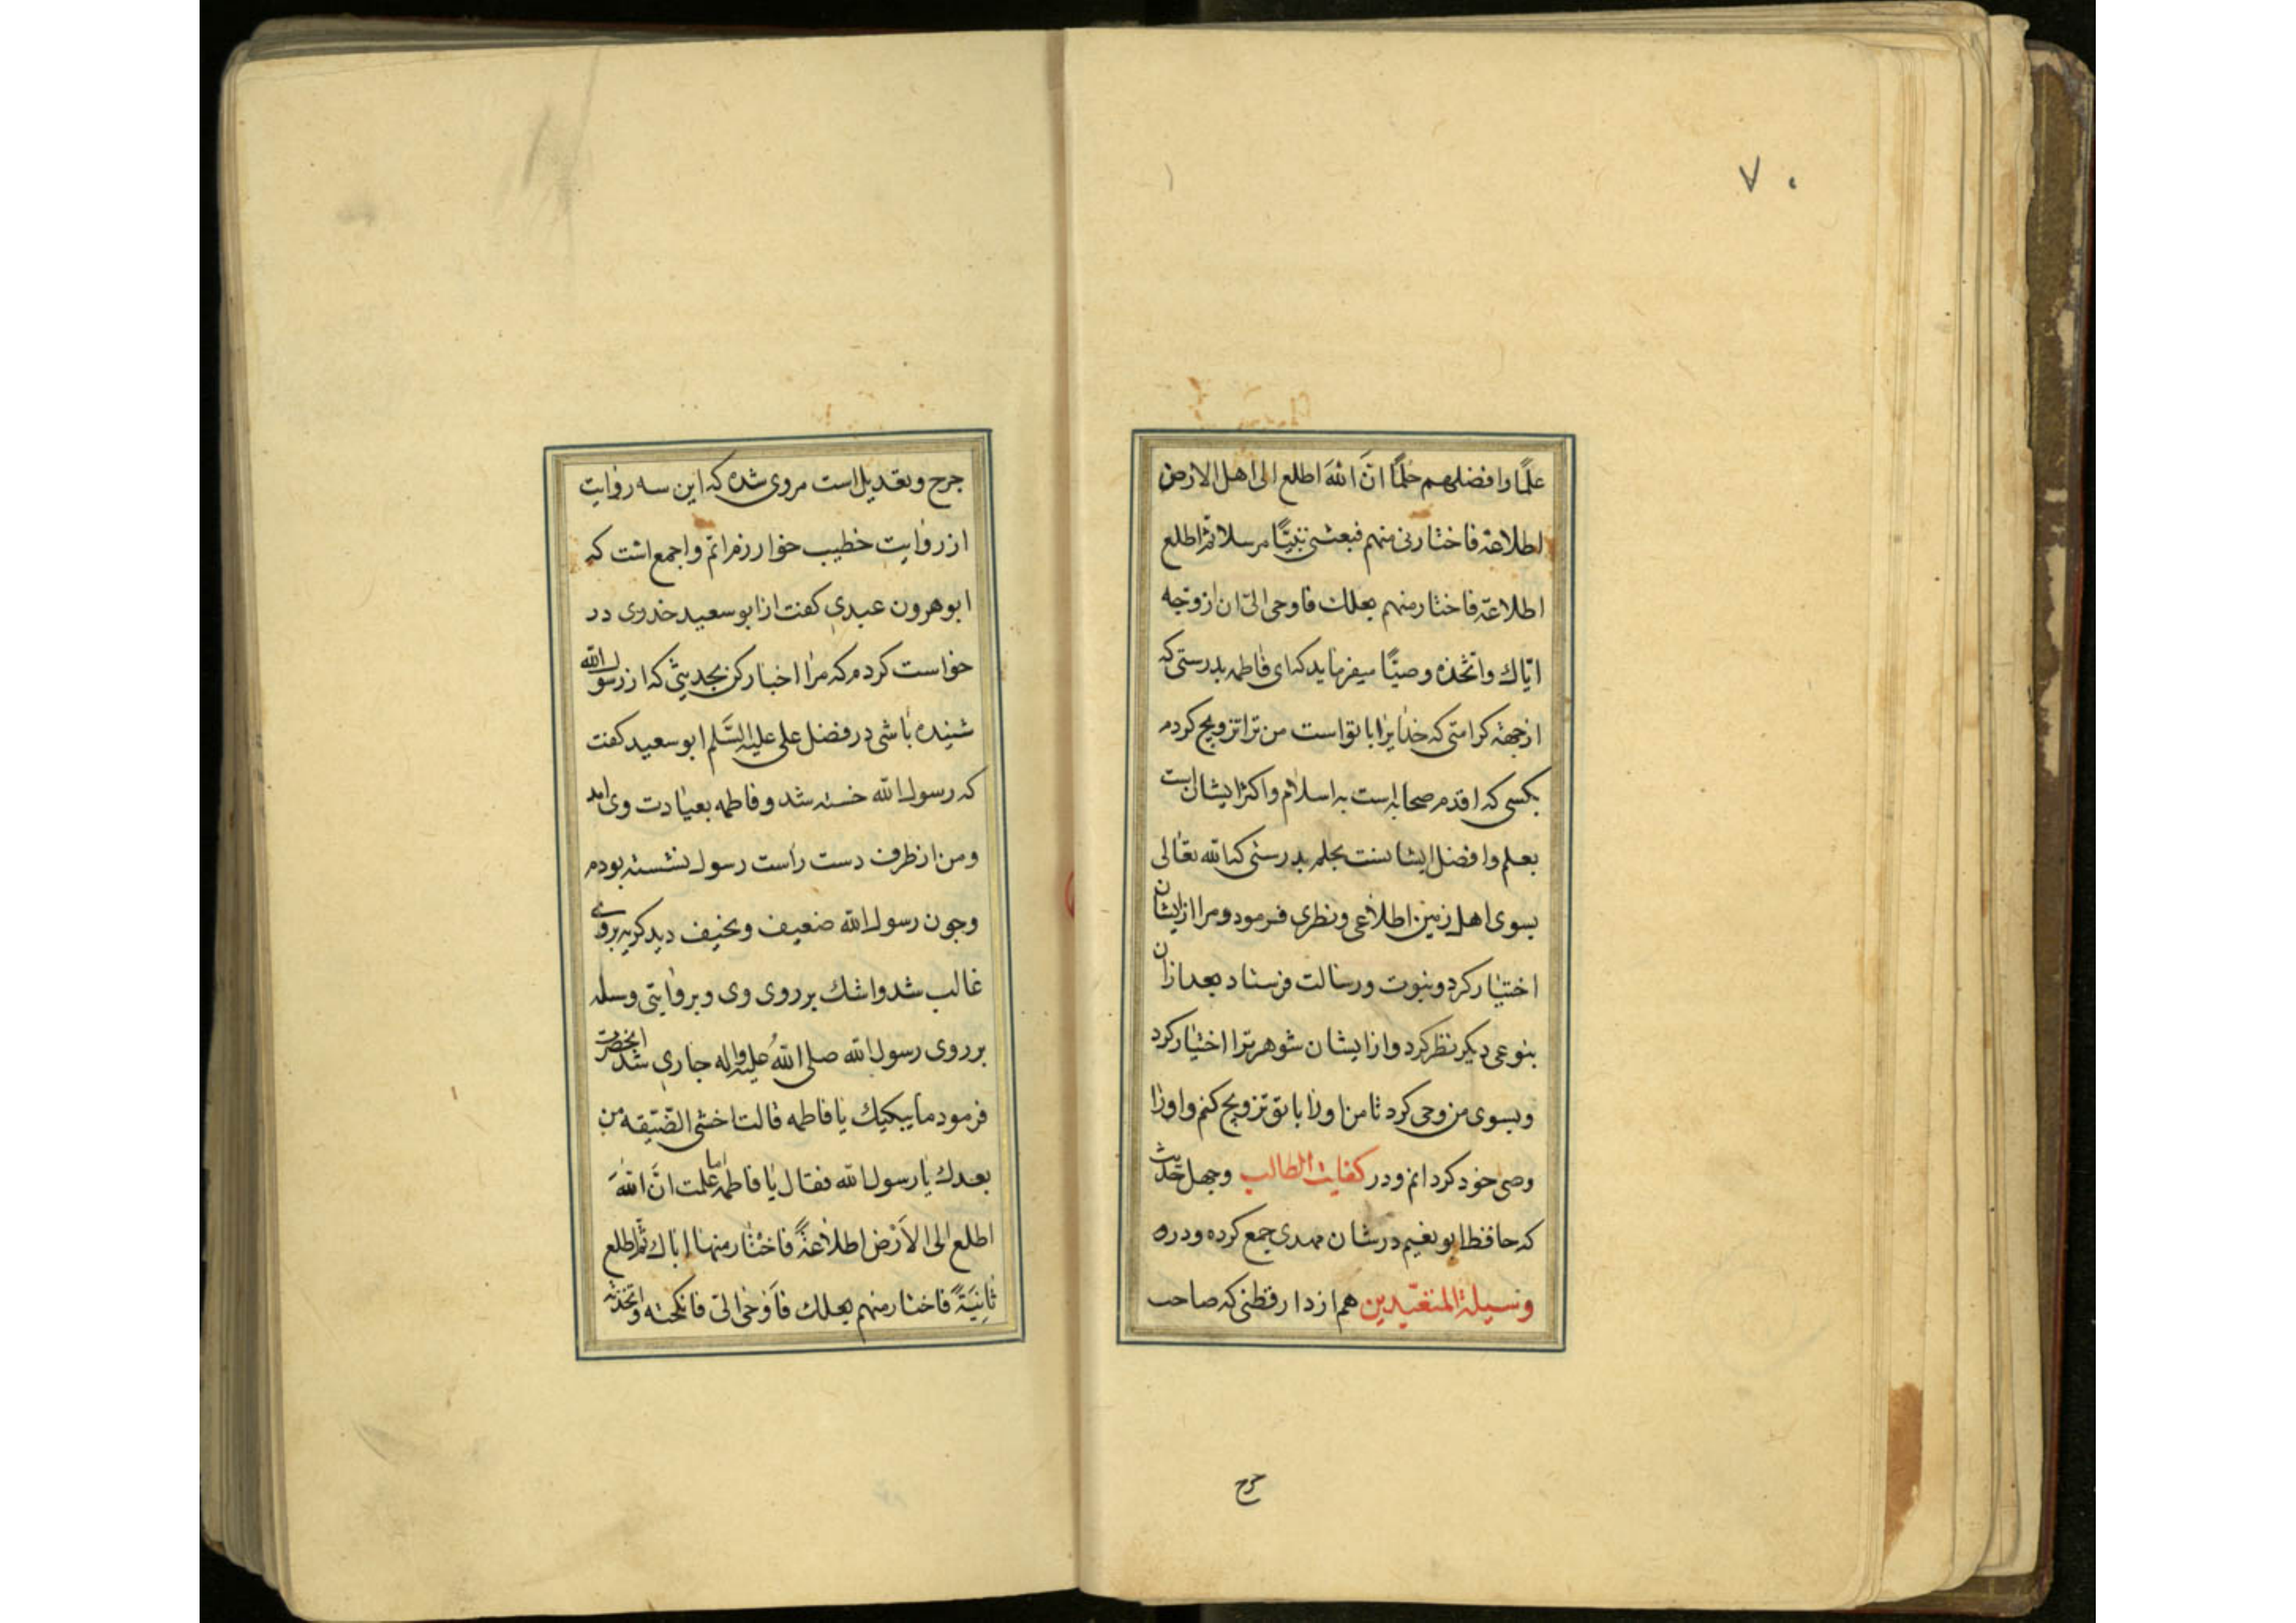 ۷۰
علمًا وافضلهم حلمًا انّ الله اطلع الی اهل الارض
اطلاعة فاختارنی منهم فبعثنی نبیًّا مرسلا ثمّ اطلع
اطلاعة فاختار منهم بعلك فاوحی الیّ ان ازوّجه
ایّاك واتّخذه وصیًّا میفرماید که ای فاطمه بدرستی که
ازجهة کرامتی که خدایرا با تو است من ترا تزویج کردم
بکسی که اقدم صحابه است به اسلام واکثر ایشان است
بعلم وافضل ایشانست بحلم بدرستی که الله تعالی
بسوی اهل زمین اطلاعی ونظری فرمود ومرا از ایشان
اختیار کرد وبنبوت ورسالت فرستاد بعد ازان
بنوعی دیکر نظر کرد واز ایشان شوهر ترا اختیار کرد
وبسوی من وحی کرد تا من اورا با تو تزویج کنم واورا
وصی خود کردانم ودر کفایت الطالب وچهل حدیث
که حافظ ابو نعیم در شان مهدی جمع کرده ودره
وسیلة المتعبّدین هم از دارقطنی که صاحب
جرح
جرح وتعدیل است مروی شده که این سه روایت
از روایت خطیب خوارزم اتمّ واجمع است که
ابوهرون عبدی کفت از ابو سعید خدری در
خواست کردم که مرا اخبار کن بحدیثی که از رسول الله
شنیده باشی در فضل علی علیه السّلم ابو سعید کفت
که رسول الله خسته شد وفاطمه بعیادت وی امد
ومن از طرف دست راست رسول نشسته بودم
وچون رسول الله ضعیف ونحیف دید کریه بروی
غالب شد واشك بر روی وی وبروایتی وسلم
بر روی رسول الله صلی الله علیه واله جاری شد انحضرت
فرمود ما یبکیك یا فاطمه قالت اخشی الضّیقة من
بعدك یا رسول الله فقال یا فاطمة اما علمت انّ الله
اطلع الی الاَرْض اطلاعةً فاختار منها اباك ثمّ اطلع
ثانِیَةً فاختار منهم بعلك فَاَوْحی الیّ فانکحته واتّخذته